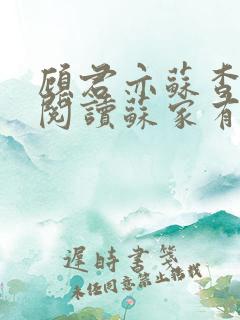 顧君亦蘇杳
閱讀蘇家有
遲時書箋
未經同意禁止轉載